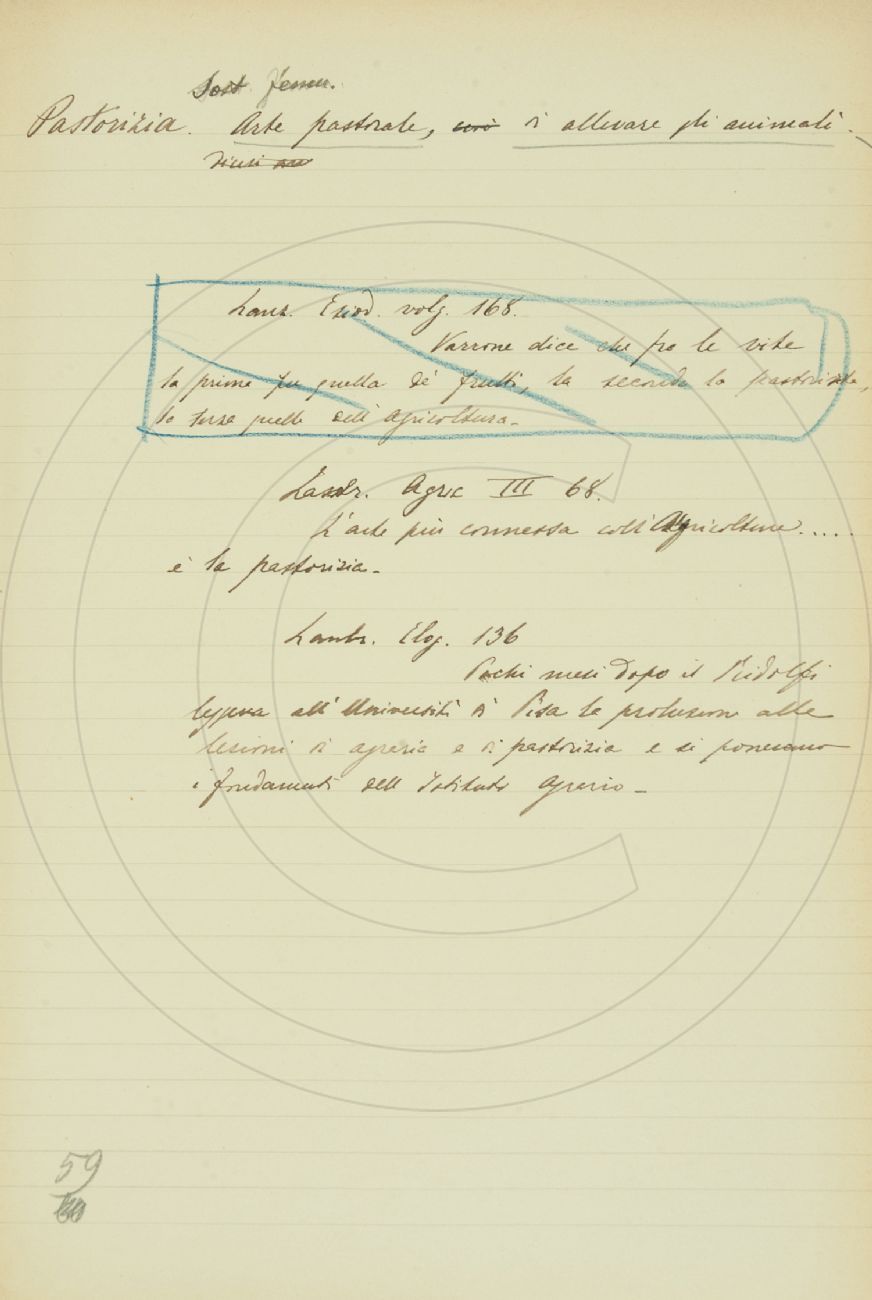 Sost. femm.
Pastorizia. Arte pastorale, cioè di allevare gli animali.
Lanz. Esiod. volg. 168.
Varrone dice che fra le vite
la prima fu quella de' frutti, la seconda la pastorizia,
la terza quella dell'agricoltura.
Lambr. Agric III 68.
L'arte più connessa coll'Agricoltura.....
è la pastorizia.
Lambr. Elog. 136
Pochi mesi dopo il Ridolfi
leggeva all'Università di Pisa la prolusione alle
lezioni di agraria e di pastorizia e si ponevano
i fondamenti dell'Istituto Agrario.
59